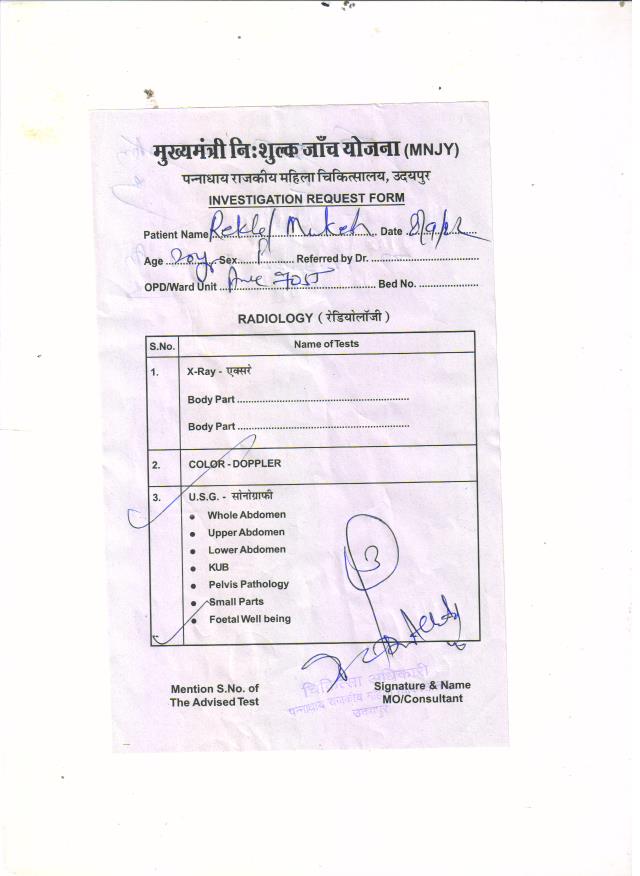 मुख्यमंत्री नि:शुल्क जाँच योजना (MNJY)
पन्नाधाय राजकीय महिला चिकित्सालय, उदयपुर
INVESTIGATION REQUEST FORM
Patient Name Rekha/ Mukesh Date
Age 20y Sex F Referred by Dr.
OPD/Ward Unit Bed No.
RADIOLOGY ( रेडियोलॉजी )
S.No. Name of Tests
1. X-Ray - एक्सरे
Body Part
Body Part
2. COLOR - DOPPLER
3. U.S.G. - सोनोग्राफी
● Whole Abdomen
● Upper Abdomen
● Lower Abdomen
● KUB
● Pelvis Pathology
● Small Parts
● Foetal Well being
3
चिकित्सा अधिकारी
पन्नाधाय राजकीय
उदयपुर
Mention S.No. of Signature & Name
The Advised Test MO/Consultant